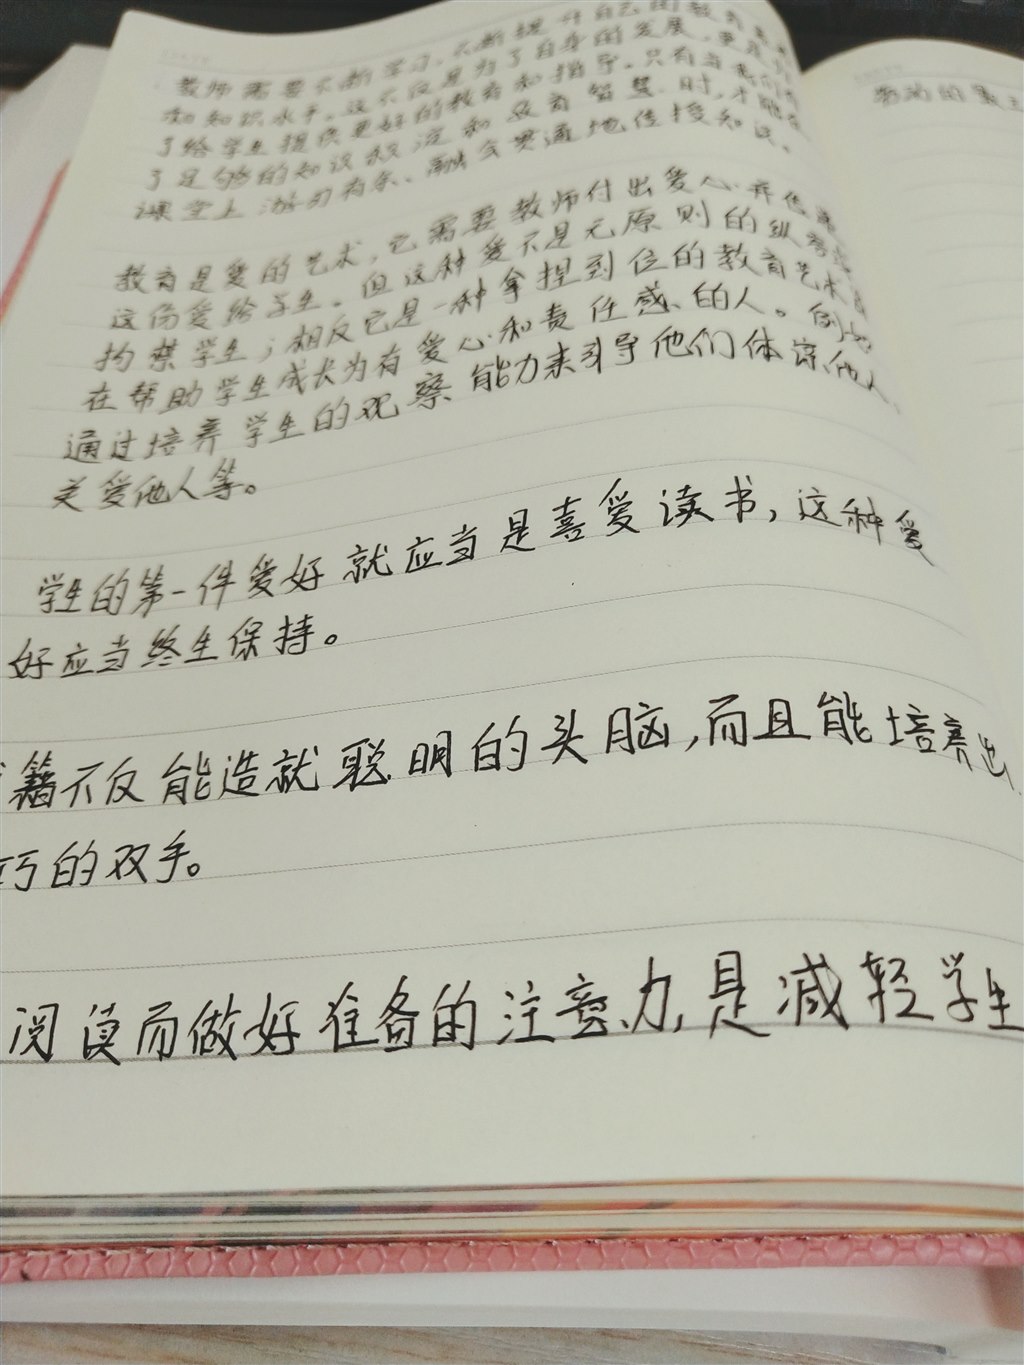 教师需要不断学习，不断提升自己的教育
和知识水平。这不仅是为了自身的发展，更是
了给学生提供更好的教育和指导。只有当我们
了足够的知识积淀和教育智慧时，才能在
课堂上游刃有余、融会贯通地传授知识。
教育是爱的艺术，它需要教师付出爱心并传
这份爱给学生。但这种爱不是无原则的纵容
拘禁学生；相反它是一种拿捏到位的教育艺术
在帮助学生成长为有爱心和责任感的人。例如
通过培养学生的观察能力来引导他们体谅他人、
关爱他人等。
学生的第一件爱好就应当是喜爱读书，这种爱
好应当终生保持。
籍不仅能造就聪明的头脑，而且能培养出
巧的双手。
阅读而做好准备的注意力，是减轻学生